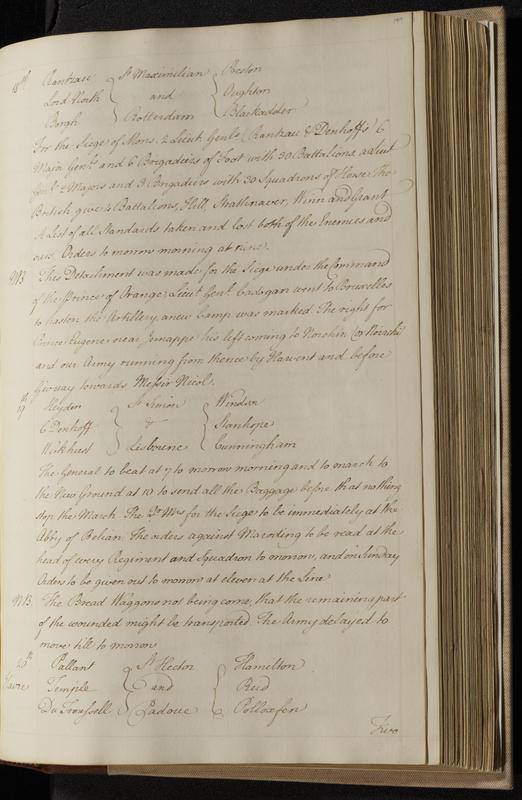 18th Rantzau { St Maximilian { Preston
Lord North { and { Oughton
Borgh { Rotterdam { Blackadder
For the Siege of Mons, 2 Lieut Genls (Rantzau & Denhoff) 6
Major Genls and 6 Brigadiers of Foot with 30 Battalions, a Lieut
Genl 2 Majors and 3 Brigadiers with 30 Squadrons of Horse. The
British give 4 Battalions, Hill, Strathnaver, Winn and Grant
A List of all Standards taken and lost both of the Enemies and
ours. Orders to morrow morning at nine.
NB This Detachment was made for the Siege under the Command
of the Prince of Orange. Lieut Genl Cadogan went to Bruxelles
to hasten the Artillery, a new Camp was marked. The right for
Prince Eugene near Jemappe his left coming to Norchin (or
and our Army running from thence by Havent and before
Givray towards Messir Nicol.
19th Heyden { St Simon { Windsor
C Denhoff { & { Stanhope
Wilkhust { Lisbourne { Cunningham
The General to beat at 7 to morrow morning and to march to
the New Ground at 10 to send all the Baggage before that nothing
stop the March. The Qr Mrs for the Siege to be immediately at the
Abby of Belian. The orders against Maroding to be read at the
head of every Regiment and Squadron to morrow, and on Sunday
Orders to be given out to morrow at eleven at the Line
NB. The Bread Waggons not being come, that the remaining part
of the wounded might be transported. The Army delayed to
move till to morrow
20th Pallant { St Hector { Hamilton
Havre Temple { and { Reid
Du Troussell { Padoue { Polloxfen
Two